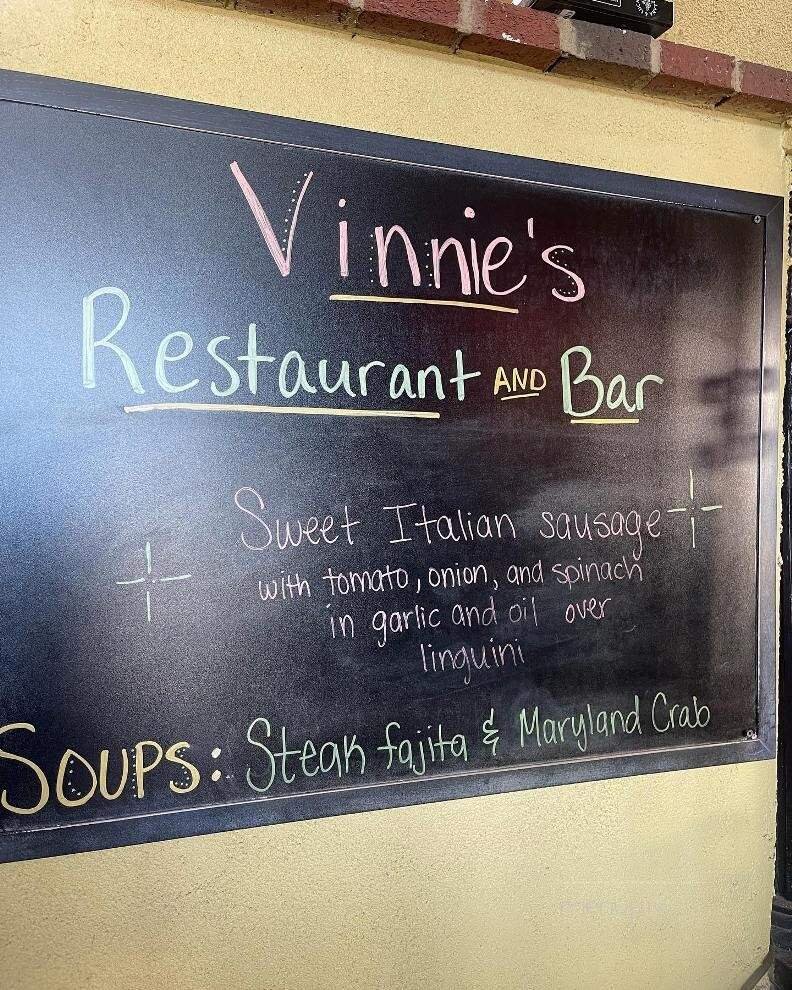 Vinnie's
Restaurant AND Bar
Sweet Italian sausage
with tomato, onion, and spinach
in garlic and oil over
linguini
SOUPS: Steak fajita & Maryland Crab